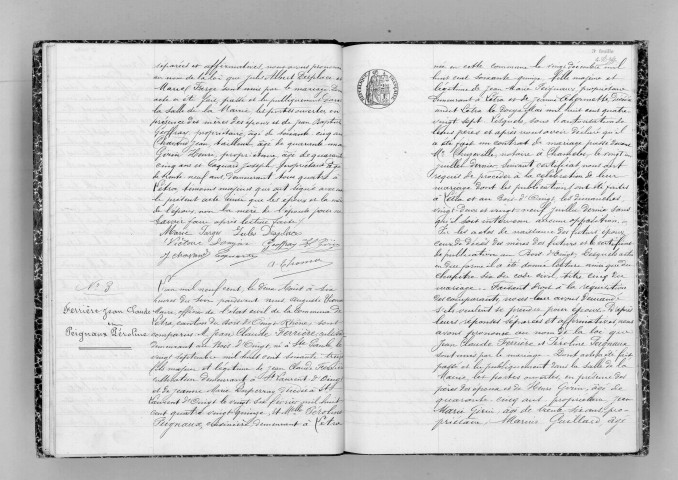 séparées et affirmatives, nous avons prononcé
au nom de la loi que Jules Albert Desplace et
Marie Farge sont unis par le mariage. Dont
acte a été fait, passé et lu publiquement dans
la salle de la Mairie les portes ouvertes en
présence des mères des époux et de Jean Baptiste
Geoffray propriétaire, âgé de soixante cinq ans
Jean tailleur âgé de quarante
Henri, propriétaire, âgé de quarante
cinq ans et Joseph, propriétaire âgé
de trente neuf ans demeurant tous quatre à
Létra, témoins majeurs qui ont signé avec nous
le présent acte ainsi que les époux et la mère
de l'époux, non la mère de l'épouse pour ne
savoir faire après lecture faite.
Marie Farge Jules Desplace
Geoffray
N° 8
Ferrière Jean Claude
et
Peignaux Péroline
L'an mil neuf cent, le deux Août à six
heures du soir pardevant nous Auguste
Maire, officier de l'état civil de la Commune de
Létra, canton du Bois d'Oingt (Rhône), sont
comparus M. Jean Claude Ferrière,
demeurant au Bois d'Oingt, né à Ste Paule le
vingt septembre mil huit cent soixante treize
fils majeur et légitime de Jean Claude Ferrière
cultivateur demeurant à St Laurent d'Oingt
et de Jeanne Marie Duperray décédée à St
Laurent d'Oingt le vingt six février mil huit
cent quatre vingt quinze, et Mlle Péroline
Peignaux, demeurant à Létra
née en cette commune le vingt décembre mil
huit cent soixante quinze, fille majeure et
légitime de Jean Marie Peignaux, propriétaire
demeurant à Létra et de décédée
audit Létra le mil huit cent quatre
vingt sept. Lesquels, sous l'autorisation de
leurs pères et après nous avoir déclaré qu'il
a été passé un contrat de mariage devant
Me notaire à Chamelet, le vingt
juillet dernier suivant certificat nous ont
requis de procéder à la célébration de leur
mariage dont les publications ont été faites
à Létra et au Bois d'Oingt, les dimanches
vingt deux et vingt neuf juillet dernier sans
qu'il soit intervenu aucune opposition.
Vu les actes de naissance des futurs époux
ceux de décès des mères des futurs et le certificat
de publication au Bois d'Oingt. Desquels actes
en due forme il a été donné lecture ainsi que du
chapitre six du code civil, titre cinq du
mariage. Faisant droit à la réquisition
des comparants, nous leur avons demandé
s'ils veulent se prendre pour époux. D'après
leurs réponses séparées et affirmatives nous
avons prononcé au nom de la loi que
Jean Claude Ferrière et Péroline Peignaux
sont unis par le mariage. Dont acte a été fait
passé et lu publiquement dans la salle de la
Mairie les portes ouvertes, en présence des
pères des époux et de Henri Girin, âgé de
quarante cinq ans propriétaire, Jean
Marie Girin âgé de trente six ans, pro-
priétaire, Marius Guillard, âgé